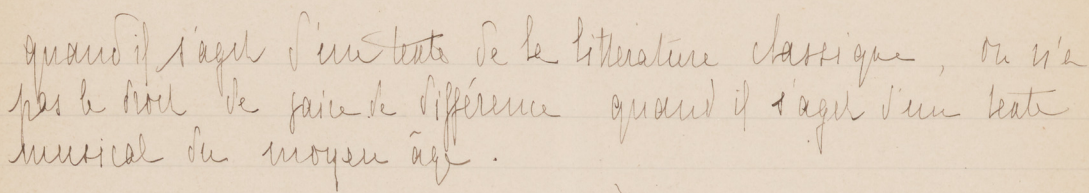 quand il s'agit d'un texte de la litterature classique, on n'a
pas le droit de faire de différence quand il s'agit d'un texte
musical du moyen âge.